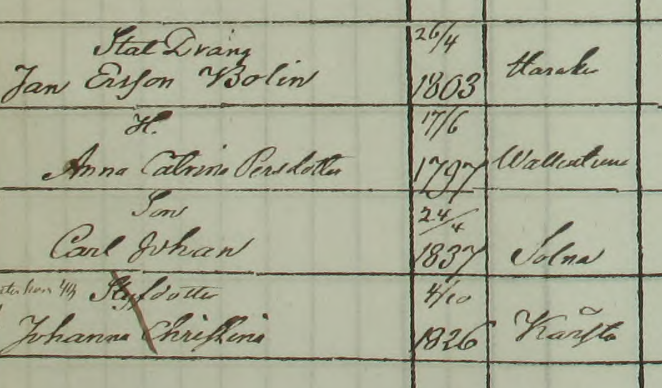 Stat Dräng 26/4
Jan Ersson Bolin 1803 Haraker
H. 17/6
Anna Catrina Persdotter 1797 Wallentuna
Son 24/4
Carl Johan 1837 Solna
Styfdotter 4/10
Johanna Christina 1826 Kårsta